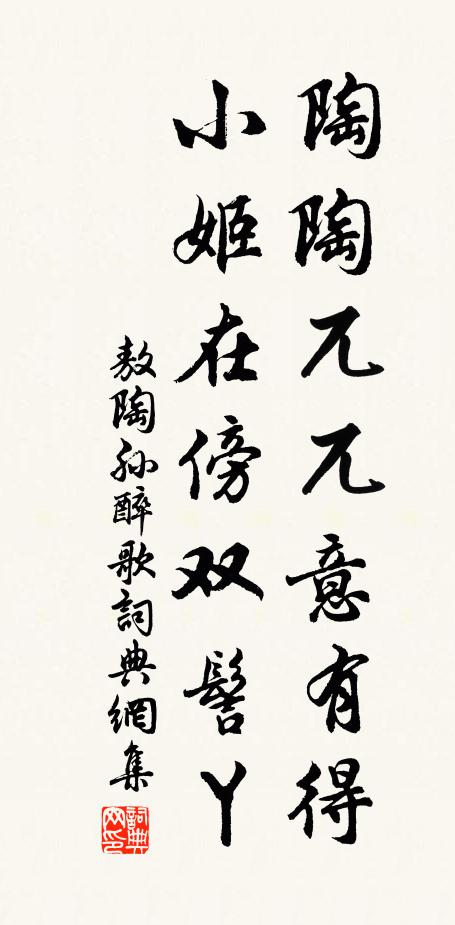 陶陶兀兀意有得
小姬在傍双髻丫
敖陶孙醉歌詞典網集
詞典
网印